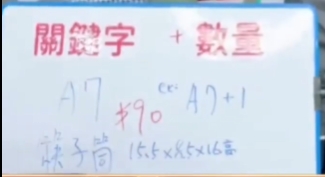 關鍵字 + 數量
A7 $90 ex: A7+1
筷子筒 15.5×8.5×16高